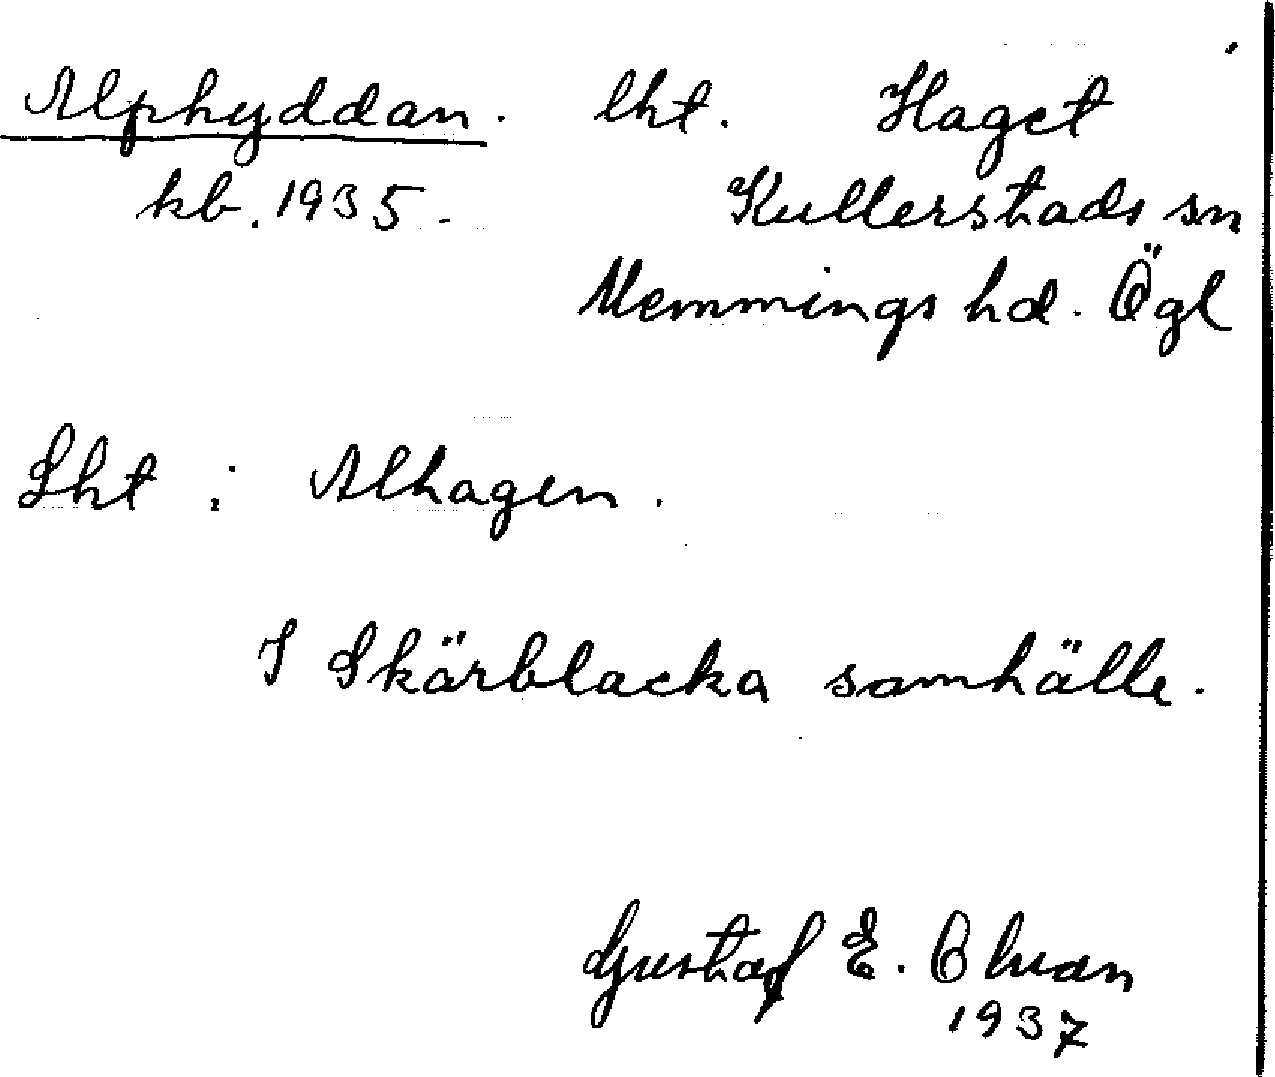 Alphyddan. lht. Haget
kb. 1935. Kullerstads sn
Memmings hd. Ögl
Lht i Alhagen.
I Skärblacka samhälle.
Gustaf E.
1937